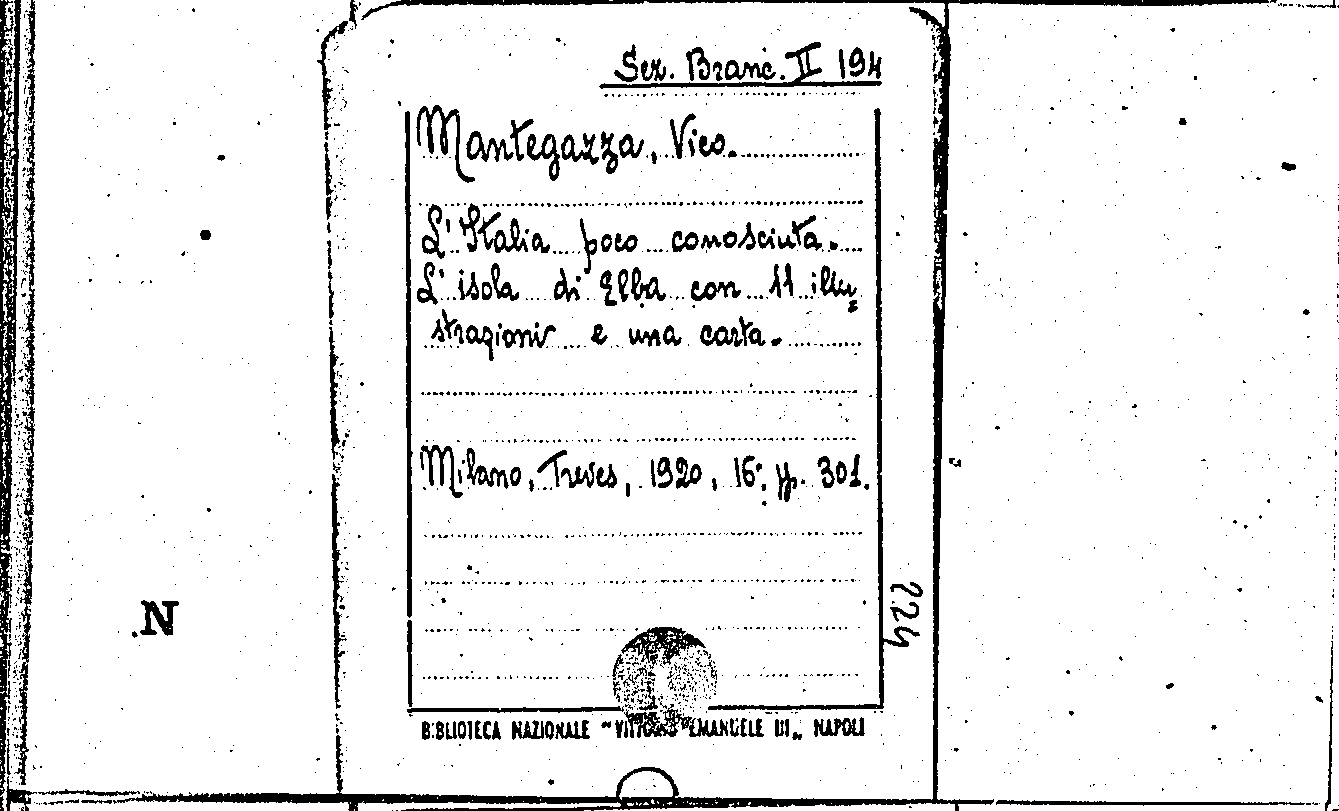 Sez. Branc. II 194
Mantegazza, Vico.
L'Italia poco conosciuta.
L'isola di Elba con 11 illu=
strazioni e una carta.
Milano, Treves, 1920, 16°, pp. 301.
224
N
BIBLIOTECA NAZIONALE "VITTORIO EMANUELE III„ NAPOLI